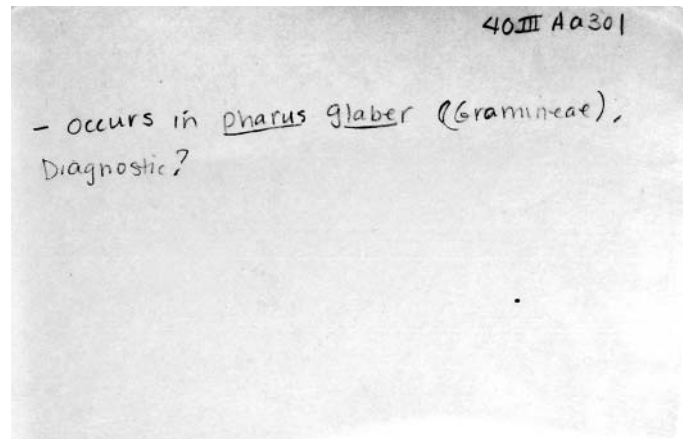 40III Aa301
- occurs in pharus glaber (Gramineae).
Diagnostic?